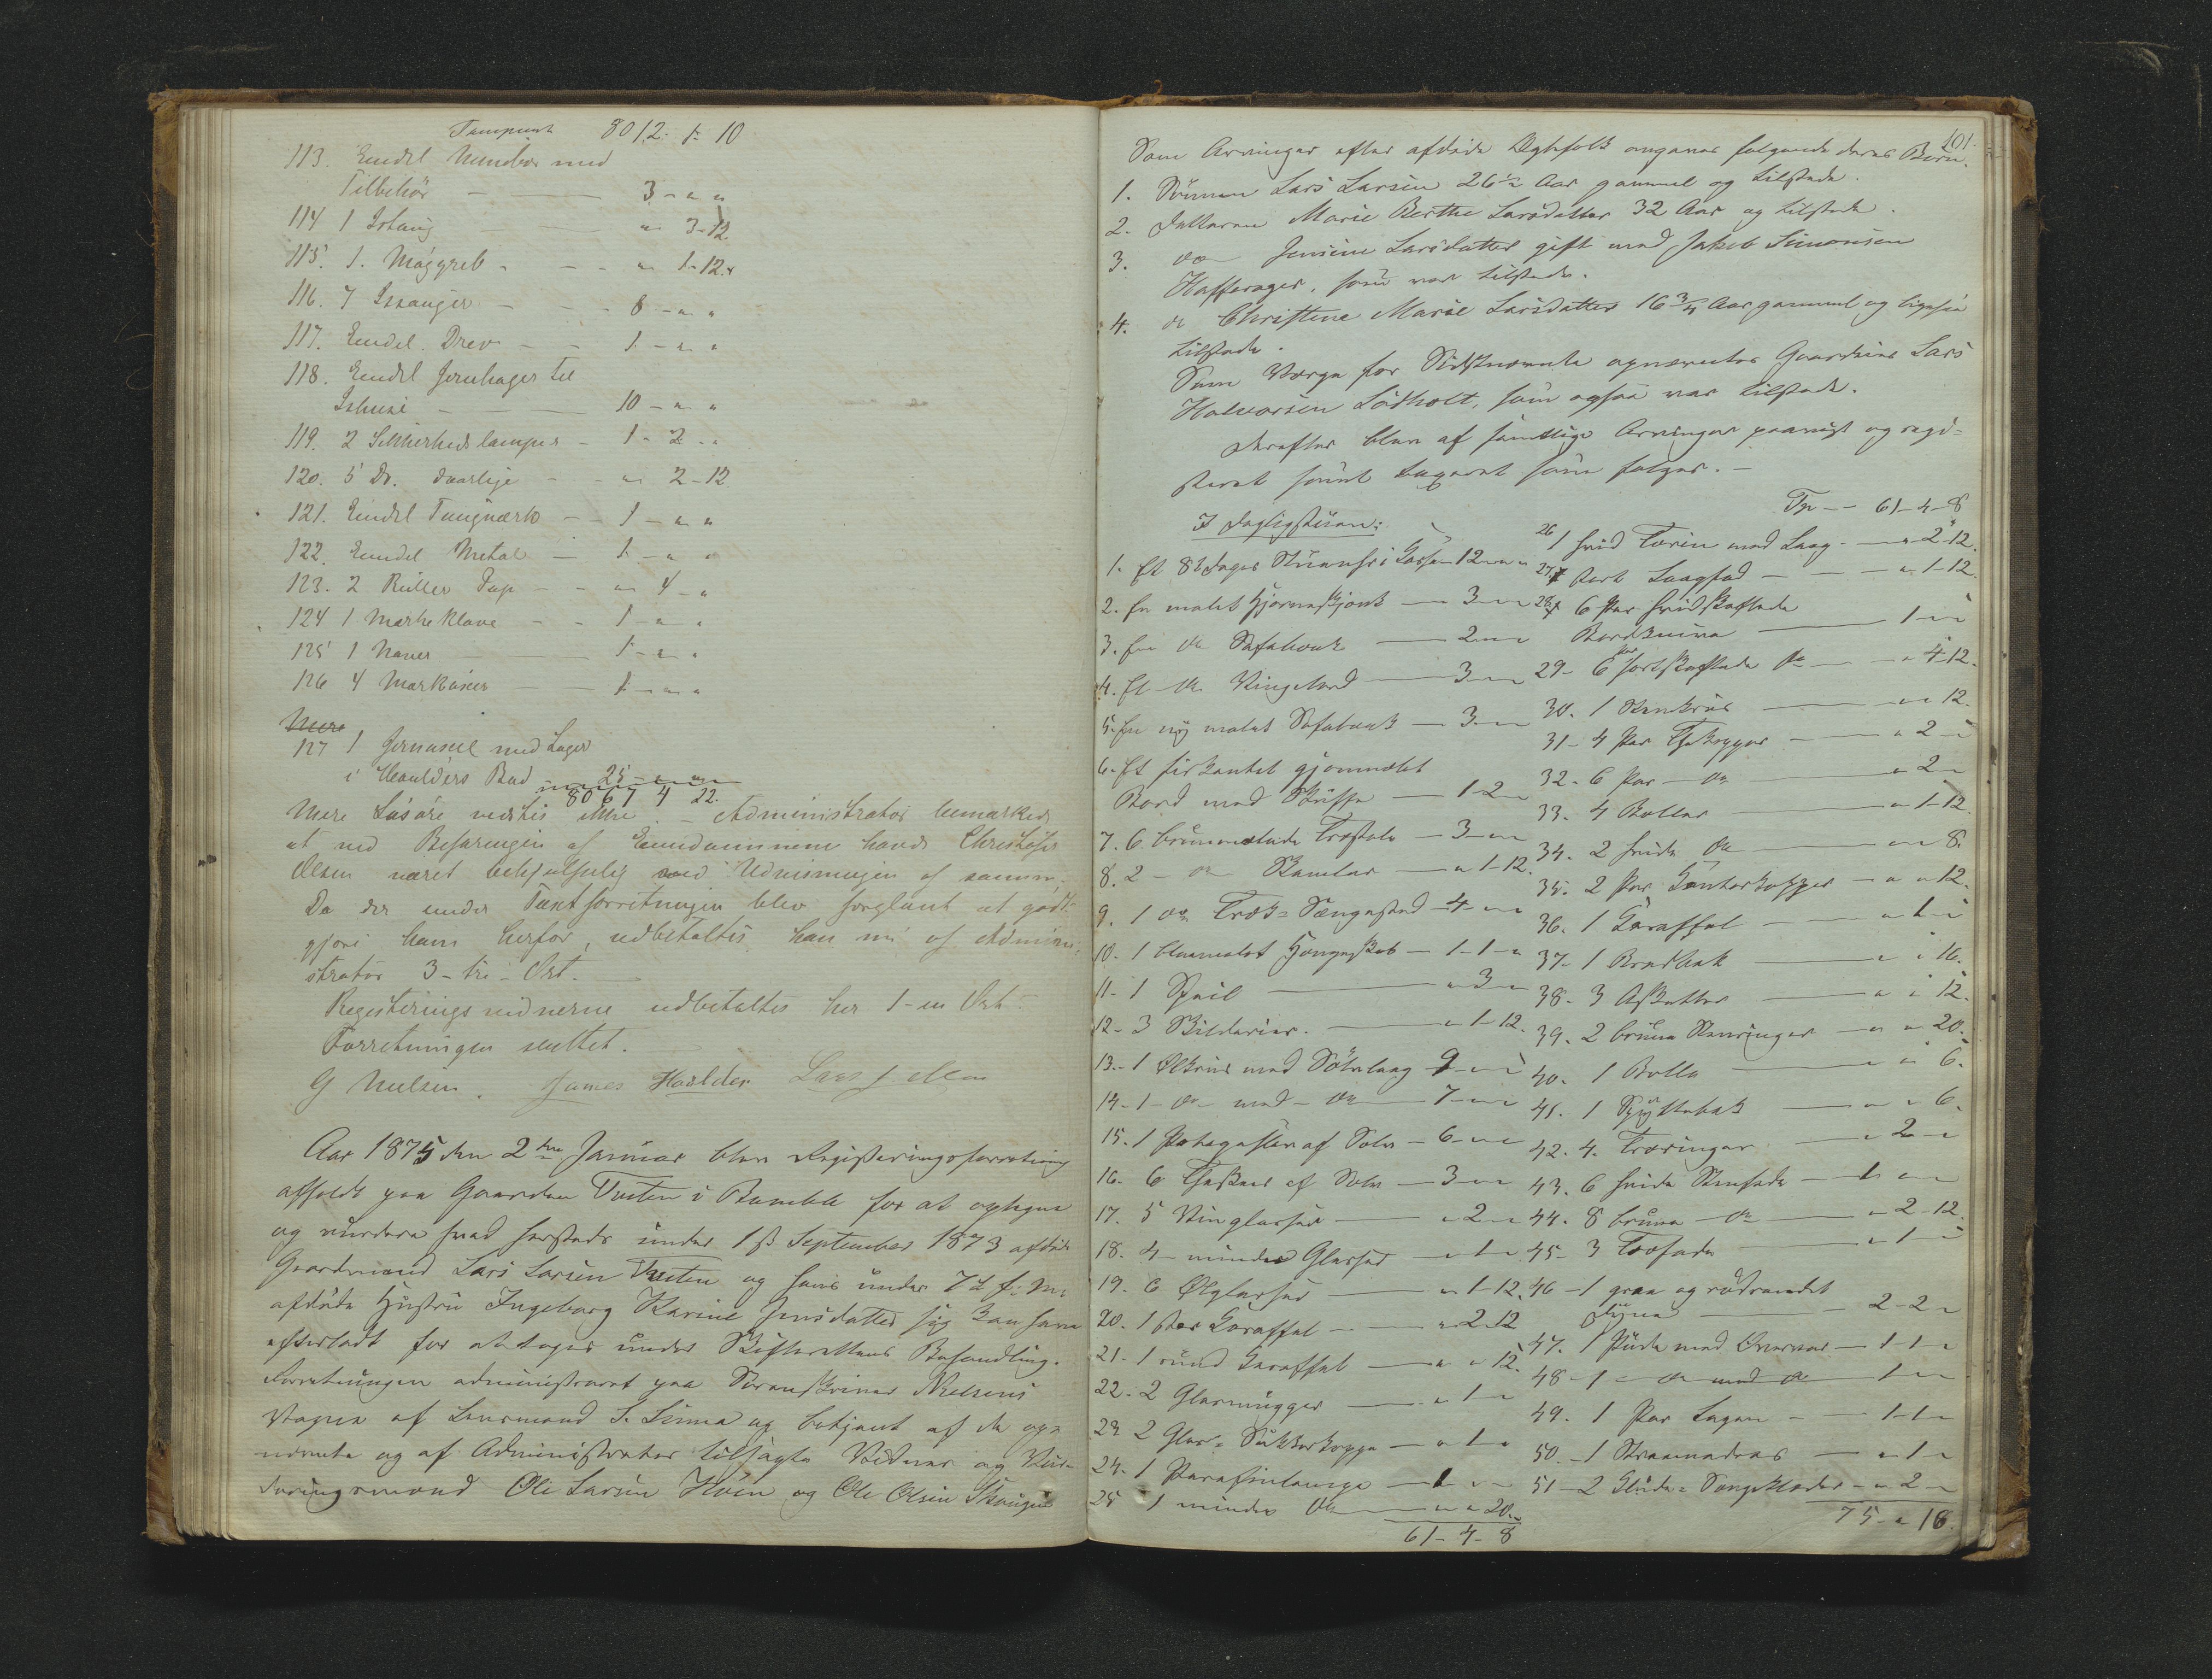 Transport 8012 - 1 - 10
113. Endel Nunebor med
Tilbehör — 3 - " "
114 1 Istang " 3-12
115. 1. Møggreb - - - " 1-12.
116. 7 Issauger - - - 8 - " "
117. Endel Drev - - 1 - " "
118. Endel Jernhager til
Ishuse - — 10 - " "
119. 2 Sikkerheds lamper - 1 - 2 - "
120. 5 Do. daarlige - - " 2-12
121. Endel Taugværk - - 1 - " "
122. Eendel Metal - 1 - " "
123. 2 Ruller Pap - - " 4 - "
124 1 Mærke Klave - - 1 - " "
125 1 Naver — 1 - " "
126 4 Markøser — 1 - " "
Mere
127 1 Jernaxel med Lager
i Houlders Bod 25 - " "
8067 4 22.
Mere Løsøre vedstes ikke. - Administrator bemærked
at ved Befaringen af Eiendommene havde Christofer
Olsen været behjælpelig med Udvisningen af samme.
Da der under Taxtforretningen blev forglemt at godt-
gjøre ham herfor, udbetaltes han nu af Admini-
strator 3 - tre - Ort. —
Registerings vidnerne udbetaltes her 1 - en Ort.
Forretningen sluttet. —
G Nielsen. James Houlder Lars J Ellen
Aar 1875 den 2den Januar blev Registeringsforretning
afholdt paa Gaarden Tveten i Bamble for at optegne
og vurdere hvad herstede under 1ste September 1873 afdøde
Gaardmand Lars Larsen Tveten og hans under 7de f. M.
afdøde Hustru Ingeborg Karine Jensdatter sig kan have
efterladt for at tages under Skifterettens Behandling.
Forretningen administreret paa Sorenskriver Nielsens
Vegne af Lensmand S. Linna og betjent af de op-
nævnte og af Administrator tilsagte Vidner og Vur-
deringsmænd Ole Larsen Hven og Ole Olsen Skaugen
101.
Som Arvinger efter afdøde Egtefolk angaves følgende deres Børn.
1. Sønnen Lars Larsen 26½ Aar gammel og tilstede.
2. Datteren Marie Berthe Larsdatter 32 Aar og tilstede.
3. do Jensine Larsdatter gift med Jakob Simonsen
Hafsrager, som var tilstede.
4. do Christene Marie Larsdatter 16¾ Aar gammel og ligesaa
tilstede.
Som Værge for Sidstnævnte opnævntes Gaardeier Lars
Halvorsen Lødholt, som ogsaa var tilstede.
Derefter blev af samtlige Arvinger paavist og regi-
streret samt taxeret som følger. —
I Dagligstuen:
1. Et 8te Dages Stueuhr i Kasse 12 - " "
2. En malet Hjørneskjænk — 3 - " "
3. En do Sofabænk — 2 - " "
4. Et do Vingebord — 3 - " "
5. En ny malet Sofabænk — 3 - " "
6. Et firkantet gjemmalet
Bord med Skuffe — 1 - 2 "
7. 6 brunmalede Træstole — 3 - " "
8. 2 - do Skamler — " 1-12.
9. 1 do Træk-Sængested — 4 - " "
10. 1 blaamalet Hængeskab — 1 - 1 - "
11. 1 Speil — " 3 "
12. 3 Skilderier. — " 1-12.
13. 1 Ølkrus med Sølvlaag 9 - " "
14. 1 - do - med - do — 7 - " "
15. 1 Potageskee af Sølv — 6 - " "
16. 6 Theskeer af Sølv — 3 - " "
17. 5 Vinglasser — " 2 - "
18. 4 mindre Glasser — " 1 - "
19. 6 Ølglasser — " 1-12.
20. 1 stor Karaffel — " 2-12
21. 1 rund Karaffel — " " 12.
22. 2 Glasmugger — " 1 - "
23 2 Glas-Sukkerkoppe — " 1 - "
24. 1 Parafinlampe — 1 - " "
25 1 mindre do — " " 20.
61 - 4 - 8
Tr — 61 - 4 - 8
26 1 hvid Terin med Laag — " 2-12.
27. 7 stort Laagfad — " 1-12.
28. 6 Par hvidskaftede
Bordknive — 1 - " "
29. 6 Par sortskaftede do — " 4-12.
30. 1 Stenkrus — " " 12.
31. 4 Par Thekopper — " 2 - "
32. 6 Par — do " 2 -
33. 4 Boller — " 1-12
34. 2 hvide do — " " 8.
35. 2 Par — " " 12.
36. 1 Karaffel — " 1 - "
37. 1 Brødbak — " " 16.
38. 3 Asketter — " " 12.
39. 2 brune — " " 20.
40. 1 Bolle — " " 6.
41. 1 Spyttebak — " " 6.
42. 4. Træringer — " 2 - "
43. 6 hvide Stenfade — 1 " "
44. 8 brune — do — " 2-12.
45. 3 Træfade — " 1 - "
46 - 1 graa og rødrandet
Dyne — 2 - 2 - "
47. 1 Pude med Overvar — 1 - 1 - "
48 - 1 - do med do — 1 - " "
49. 1 Par Lagen — 1 - 1 - "
50. - 1 Straamadras — " 1 - "
51 - 2 Sengeklæder — " 2 - "
75 - " 16.